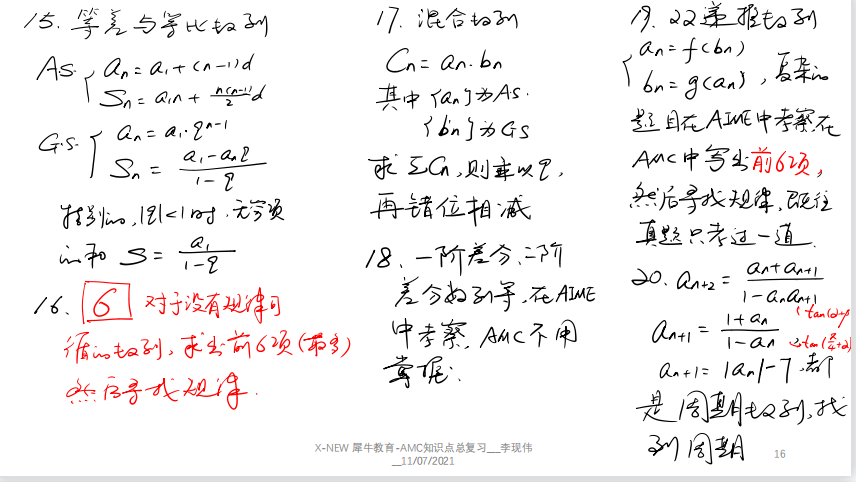 15. 等差与等比数列
A.S. { an = a1 + (n-1)d
Sn = a1n + n(n-1)/2 d
G.S. { an = a1·q^(n-1)
Sn = (a1-anq)/(1-q)
特别的, |q|<1时, 无穷项
的和 S = a1/(1-q)
16. 6 对于没有规律可
循的数列, 求出前6项(最多)
然后寻找规律.
17. 混合数列
Cn = an·bn
其中{an}为A.S.
{bn}为G.S
求ΣCn, 则乘以q,
再错位相减
18. 一阶差分、二阶
差分数列等, 在AIME
中考察, AMC不用
掌握.
19. 22递推数列
{ an = f(bn)
bn = g(an) , 复杂的
题目在AIME中考察, 在
AMC中写出前6项,
然后寻找规律, 既往
真题只考过一道.
20. an+2 = (an+an+1)/(1-anan+1)
(tan(α+β
an+1 = (1+an)/(1-an) , tan(π/4+α)
an+1 = |an|-7 , 都
是周期数列, 找
到周期
X-NEW 犀牛教育-AMC知识点总复习___李现伟
__11/07/2021
16